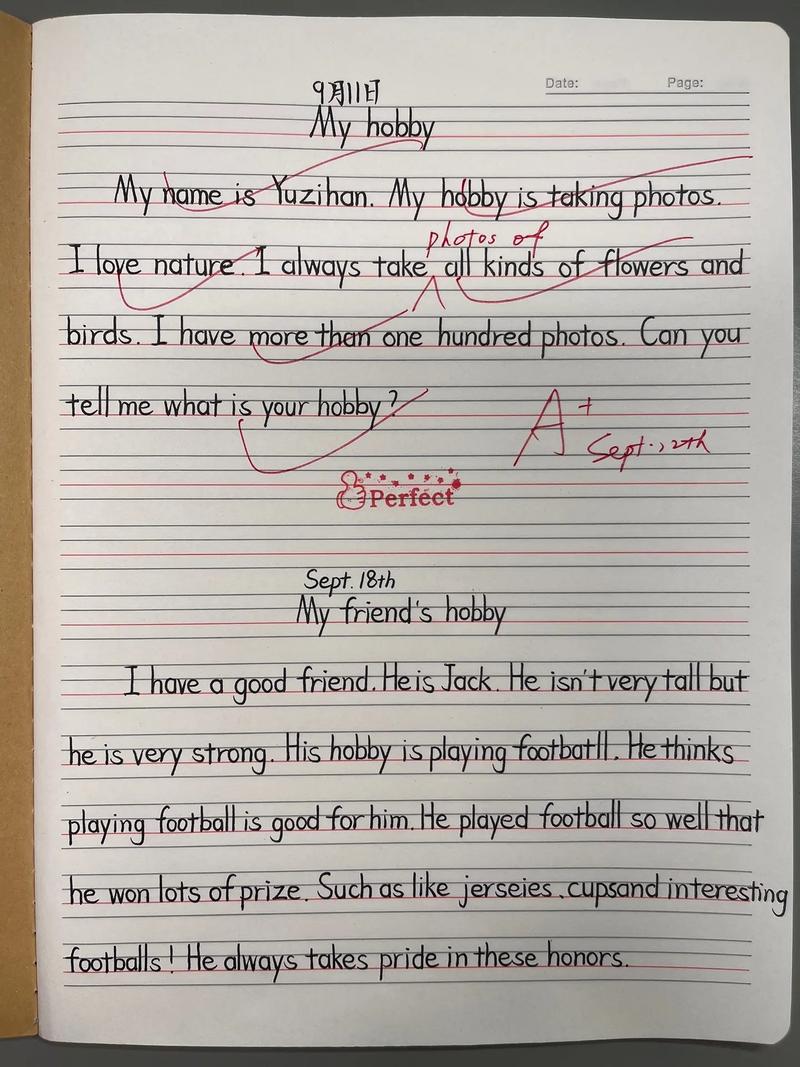 Date: Page:
9月11日
My hobby
My name is Yuzihan. My hobby is taking photos.
photos of
I love nature. I always take all kinds of flowers and
birds. I have more than one hundred photos. Can you
tell me what is your hobby?
A+
Sept.12th
Perfect
Sept. 18th
My friend's hobby
I have a good friend. He is Jack. He isn't very tall but
he is very strong. His hobby is playing footbatll. He thinks
playing football is good for him. He played football so well that
he won lots of prize. Such as like jerseies、cupsand interesting
footballs! He always takes pride in these honors.